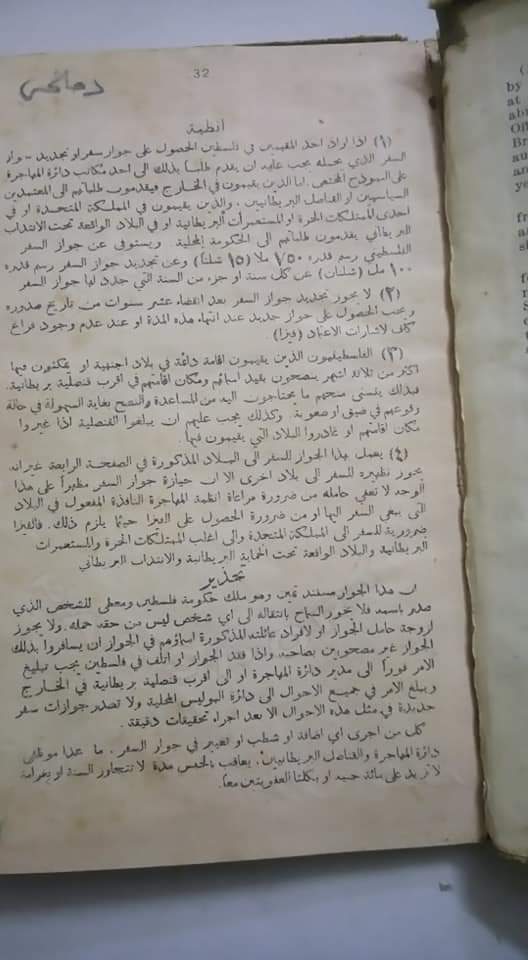 32
أنظمة
(١) اذا اراد احد المقيمين في فلسطين الحصول على جواز سفر او تجديد جواز
السفر الذي يحمله يجب عليه ان يقدم طلباً بذلك الى احد مكاتب دائرة المهاجرة
على النموذج المختص. اما الذين يقيمون في الخارج فيقدمون طلباتهم الى المعتمدين
السياسيين او القناصل البريطانيين. والذين يقيمون في المملكة المتحدة او في
احدى الممتلكات الحرة او المستعمرات البريطانية او في البلاد الواقعة تحت الانتداب
البريطاني يقدمون طلباتهم الى الحكومة المحلية. ويستوفى عن جواز السفر
الفلسطيني رسم قدره ٧٥٠ ملا (١٥ شلناً) وعن تجديد جواز السفر رسم قدره
١٠٠ مل (شلنان) عن كل سنة او جزء من السنة التي جدد لها جواز السفر
(٢) لا يجوز تجديد جواز السفر بعد انقضاء عشر سنوات من تاريخ صدوره
ويجب الحصول على جواز جديد عند انتهاء هذه المدة او عند عدم وجود فراغ
كاف لاشارات الاعتماد (فيزا)
(٣) الفلسطينيون الذين يقيمون اقامة دائمة في بلاد اجنبية او يمكثون فيها
اكثر من ثلاثة اشهر ينصحون بقيد اسمائهم ومكان اقامتهم في اقرب قنصلية بريطانية.
فبذلك يتسنى منحهم ما يحتاجون اليه من المساعدة والنصح بغاية السهولة في حالة
وقوعهم في ضيق او صعوبة. وكذلك يجب عليهم ان يبلغوا القنصلية اذا غيروا
مكان اقامتهم او غادروا البلاد التي يقيمون فيها
(٤) يعمل بهذا الجواز للسفر الى البلاد المذكورة في الصفحة الرابعة غير انه
يجوز تظهيره للسفر الى بلاد اخرى الا ان حيازة جواز السفر مظهراً على هذا
الوجه لا تعفي حامله من ضرورة مراعاة انظمة المهاجرة النافذة المفعول في البلاد
التي ينبغي السفر اليها او من ضرورة الحصول على الفيزا حيثما يلزم ذلك. فالفيزا
ضرورية للسفر الى المملكة المتحدة والى اغلب الممتلكات الحرة والمستعمرات
البريطانية والبلاد الواقعة تحت الحماية البريطانية والانتداب البريطاني
تحذير
ان هذا الجواز مستند ثمين وهو ملك حكومة فلسطين ومعطى للشخص الذي
صدر باسمه فلا يجوز السماح بانتقاله الى اي شخص ليس من حقه حمله. ولا يجوز
لزوجة حامل الجواز او لافراد عائلته المذكورة اسماؤهم في الجواز ان يسافروا بذلك
الجواز غير مصحوبين بصاحبه. واذا فقد الجواز او اتلف في فلسطين يجب تبليغ
الامر فوراً الى مدير دائرة المهاجرة او الى اقرب قنصلية بريطانية في الخارج
ويبلغ الامر في جميع الاحوال الى دائرة البوليس المحلية ولا تصدر جوازات سفر
جديدة في مثل هذه الاحوال الا بعد اجراء تحقيقات دقيقة.
كل من اجرى اي اضافة او شطب او تغيير في جواز السفر، ما عدا موظفي
دائرة المهاجرة والقناصل البريطانيين، يعاقب بالحبس مدة لا تتجاوز السنة او بغرامة
لا تزيد على مائة جنيه او بكلتا العقوبتين معاً.